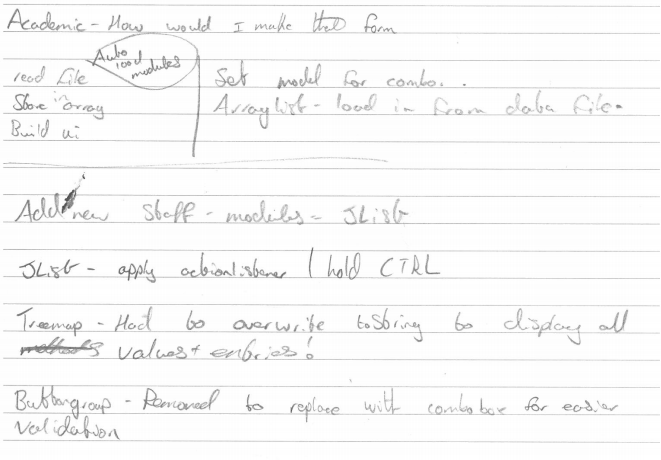 Academic - How would I make that form
Auto
load
modules
read file
Store in array
Build ui
Set model for combo..
Arraylist - load in from data file.
Add new Staff - modules - JList
JList - apply actionlistener / hold CTRL
Treemap - Had to overwrite toString to display all
methods values + entries!
Buttongroup - Removed to replace with combobox for easier
validation